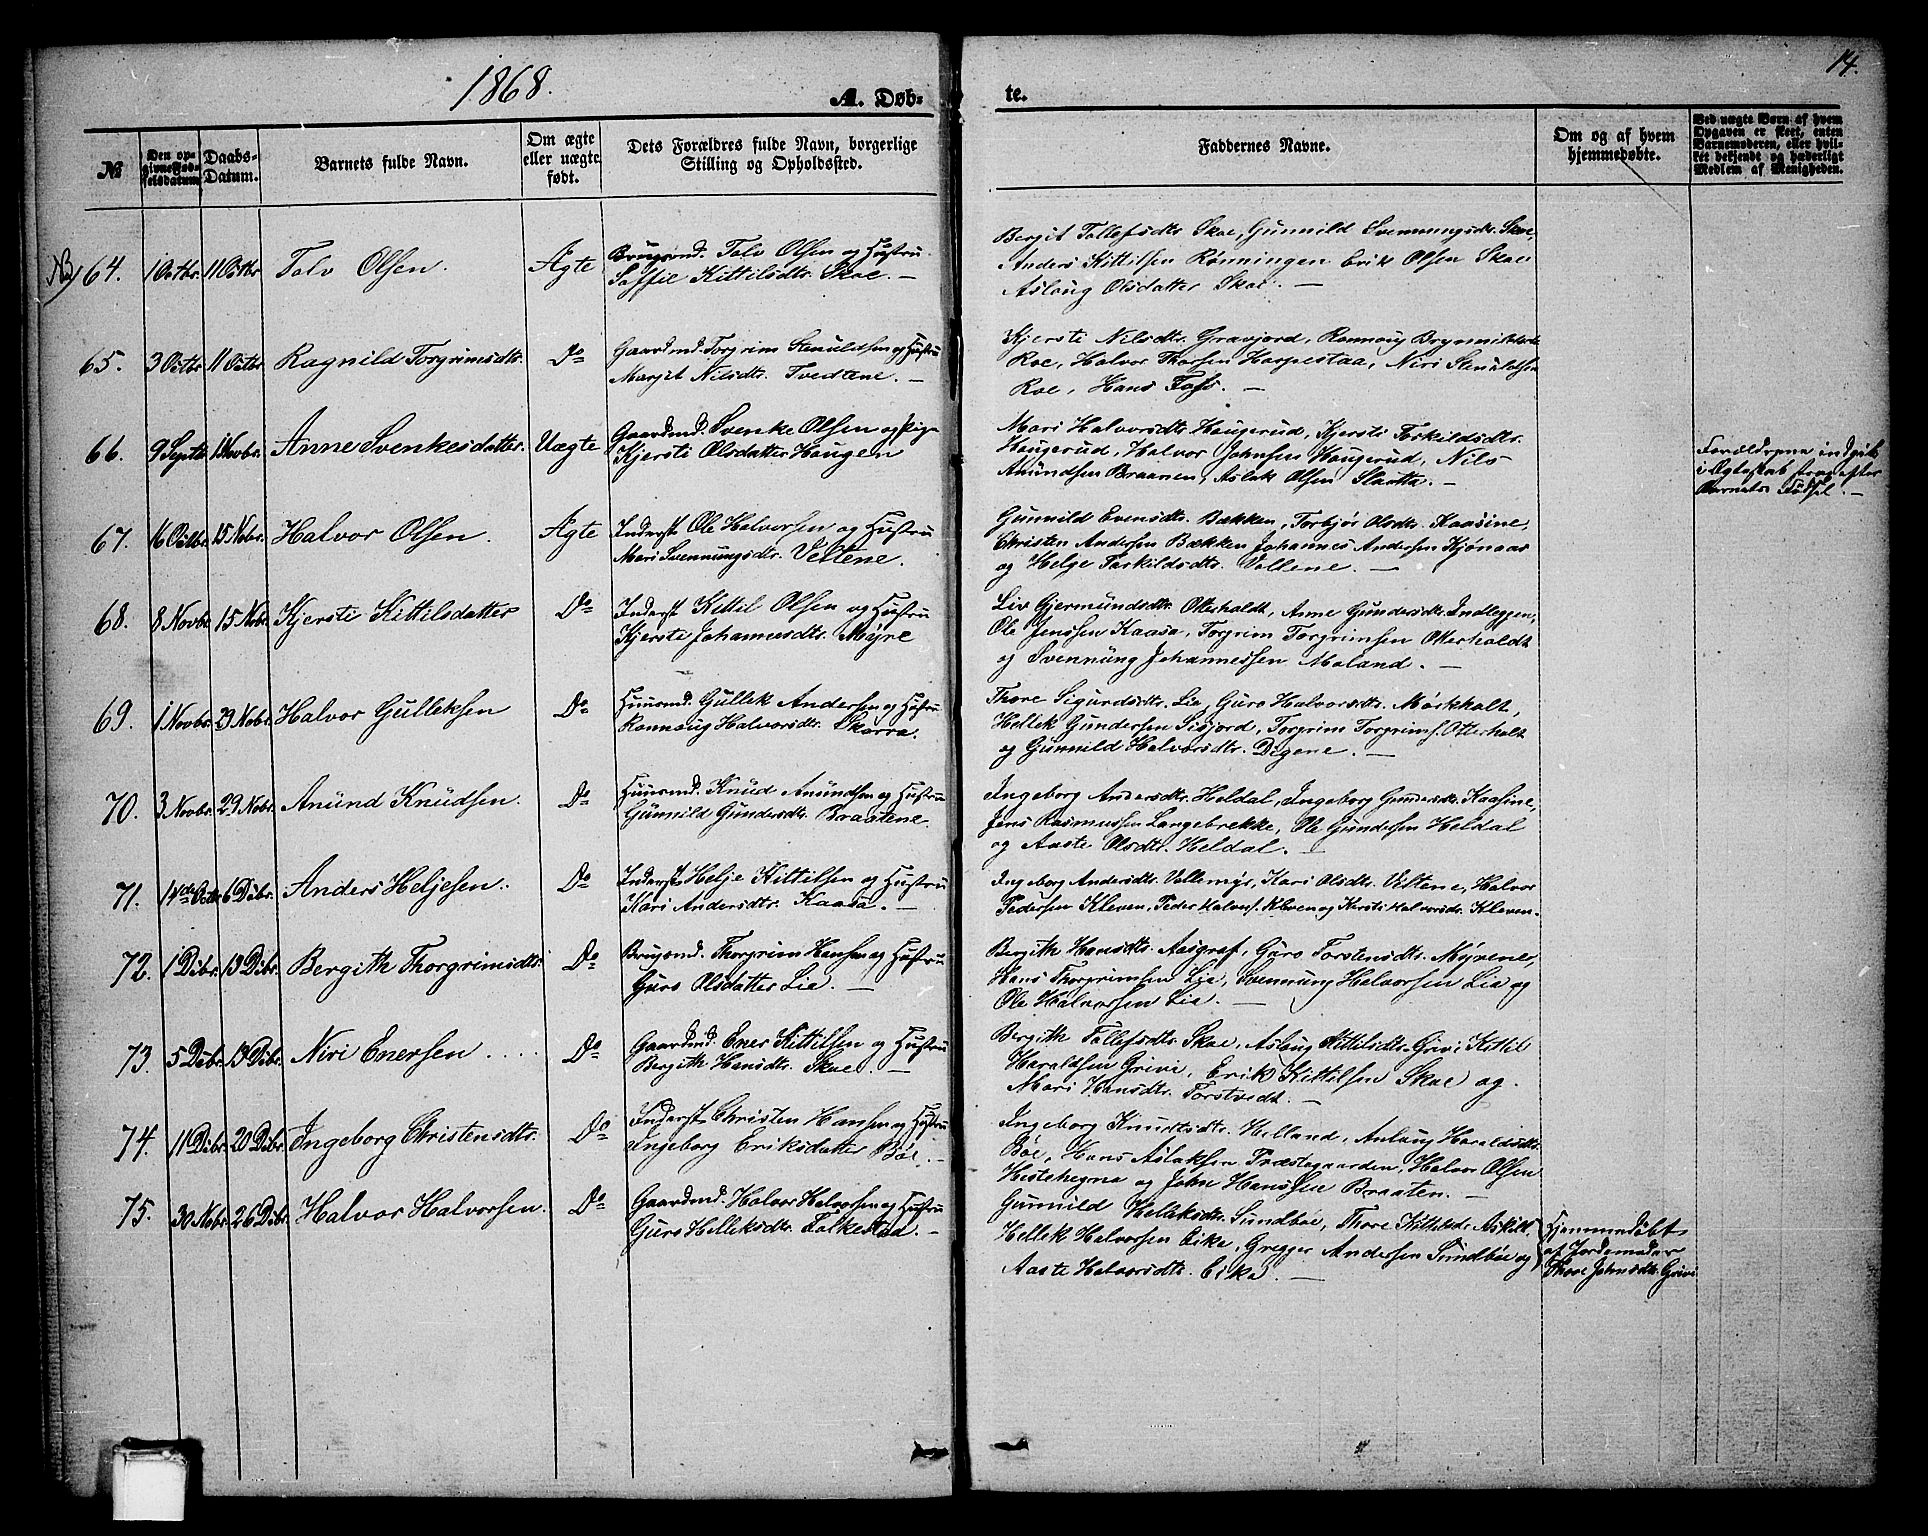 14.
1868.
A. Døb-
te.
№
Den op-
givne Fød-
selsdatum
Daabs-
Datum.
Barnets fulde Navn.
Om ægte
eller uægte
født.
Dets Forældres fulde Navn, borgerlige
Stilling og Opholdssted.
Faddernes Navne.
Om og af hvem
hjemmedøbte.
Ved uægte Børn af hvem
Opgaven er skeet, enten
Barnemoderen, eller hvil-
ket bekjendt og hæderligt
Medlem af Menigheden.
64. 1 Octbr 11 Octbr Tolv Olsen. Ægte
Brugsmd. Tolv Olsen og Hustru
Soffie Kittilsdtr. Skoe. —
Bergit Tollefsdtr. Skoe, Gunnild Svennungsdtr. Skoe,
Anders Kittilsen Rønningen Erik Olsen Skoe
Aslaug Olsdatter Skoe. —
65. 3 Octbr 11 Octbr Ragnild Torgrimsdtr. Do
Gaardmd. Torgrim Stenuldsen og Hustru
Margit Nilsdtr. Tvedtene. —
Kjersti Nilsdtr. Gravjord, Ronnoug
Roe, Halvor Thorsen Harpestaa, Niri Stenuldsen
Roe, Hans Foss. —
66. 9 Septb 1 Novbr. Anne Svenkesdatter. Uægte
Gaardmd. Svenke Olsen og Pige
Kjersti Olsdatter Haugen
Mari Halvorsdtr. Haugerud, Kjersti Torkildsdtr.
Haugerud, Halvor Johnsen Haugerud, Nils
Amundsen Braanen, Aslak Olsen Slaatta. —
Forældrene indgik
i Ægteskab strax efter
Barnets Fødsel. —
67. 16 Octbr. 15 Nobr. Halvor Olsen. Ægte
Inderst Ole Halvorsen og Hustru
Mari Svennungsdtr. Veltene.
Gunnild Evensdtr. Bækken, Torbjør Olsdtr. Kaasine,
Christen Andersen Bækken Johannes Andersen Kjønaas
og Helge Torkildsdtr. Vollene. —
68. 8 Novbr 15 Nobr. Kjersti Kittilsdatter Do
Inderst Kittil Olsen og Hustru
Kjersti Johannesdtr. Myre
Liv Gjermundsdtr. Otterholdt, Anne Gundersdtr. Indleggen,
Ole Jenssen Kaasa, Torgrim Torgrimsen Otterholdt
og Svennung Johannessen Moland. —
69. 1 Novbr. 29 Nobr. Halvor Gulleksen Do
Huusmd. Gullek Andersen og Hustru
Ronnoug Halvorsdtr. Skorra.
Thore Sigurdsdtr. Lia, Guro Halvorsdtr. Mørkholt,
Hellek Gundersen Sisjord, Torgrim Torgrims. Otterholt
og Gunnild Halvorsdtr. Digene. —
70. 3 Novbr. 29 Nobr. Anund Knudsen. Do
Huusmd. Knud Anundsen og Hustru
Gunnild Gundersdtr. Braatene.
Ingeborg Andersdtr. Heldal, Ingeborg Gundersdtr. Kaasine,
Jens Rasmussen Langebrekke, Ole Gundersen Heldal
og Aaste Olsdtr. Heldal. —
71. 14de Octbr 6 Dcbr. Anders Heljesen. Do
Inderst Helje Kittilsen og Hustru
Kari Andersdtr. Kaasa. —
Ingeborg Andersdtr. Vellemyr, Kari Olsdtr. Veltene, Halvor
Pedersen Kleven, Peder Halvors. Kleven og Kersti Halvorsdtr. Kleven.
72. 1 Dcbr. 13 Dcbr. Bergith Thorgrimsdtr. Do
Brugsmd. Thorgrim Hansen og Hustru
Guro Olsdatter Lia. —
Bergith Hansdtr. Aasgraf, Guro Torstensdtr. Myrene,
Hans Thorgrimsen Lia, Svennung Halvorsen Lia og
Ole Halvorsen Lia. —
73. 5 Dcbr. 13 Dcbr. Niri Enersen .... Do
Gaardmd. Ener Kittilsen og Hustru
Bergith Hansdtr. Skoe. —
Bergith Tollefsdtr. Skoe, Aslaug Kittilsdtr. Grivi Kittil
Haraldsen Grivi, Erik Kittilsen Skoe og
Mari Hansdtr. Torstvedt. —
74. 11 Dcbr. 20 Dcbr. Ingeborg Christensdtr. Do
Inderst Christen Hansen og Hustru
Ingeborg Eriksdatter Bøe. —
Ingeborg Knudsdtr. Helland, Aslaug Haraldsdtr.
Bøe, Hans Aslaksen Præstegaarden, Halvor Olsen
Hestehegna og John Hanssen Braaten. —
75. 30 Nobr. 26 Dcbr. Halvor Halvorsen. Do
Gaardmd. Halvor Halvorsen og Hustru
Guro Helleksdtr. Folkestaa. —
Gunnild Heleksdtr. Sundbøe, Thore Kittilsdr. Askild
Hellek Halvorsen Eika, Gregger Andersen Sundbøe og
Aaste Halvorsdtr. Eika. —
Hjemmedøbt
af Jordemoder
Thore Johnsdtr. Grivi